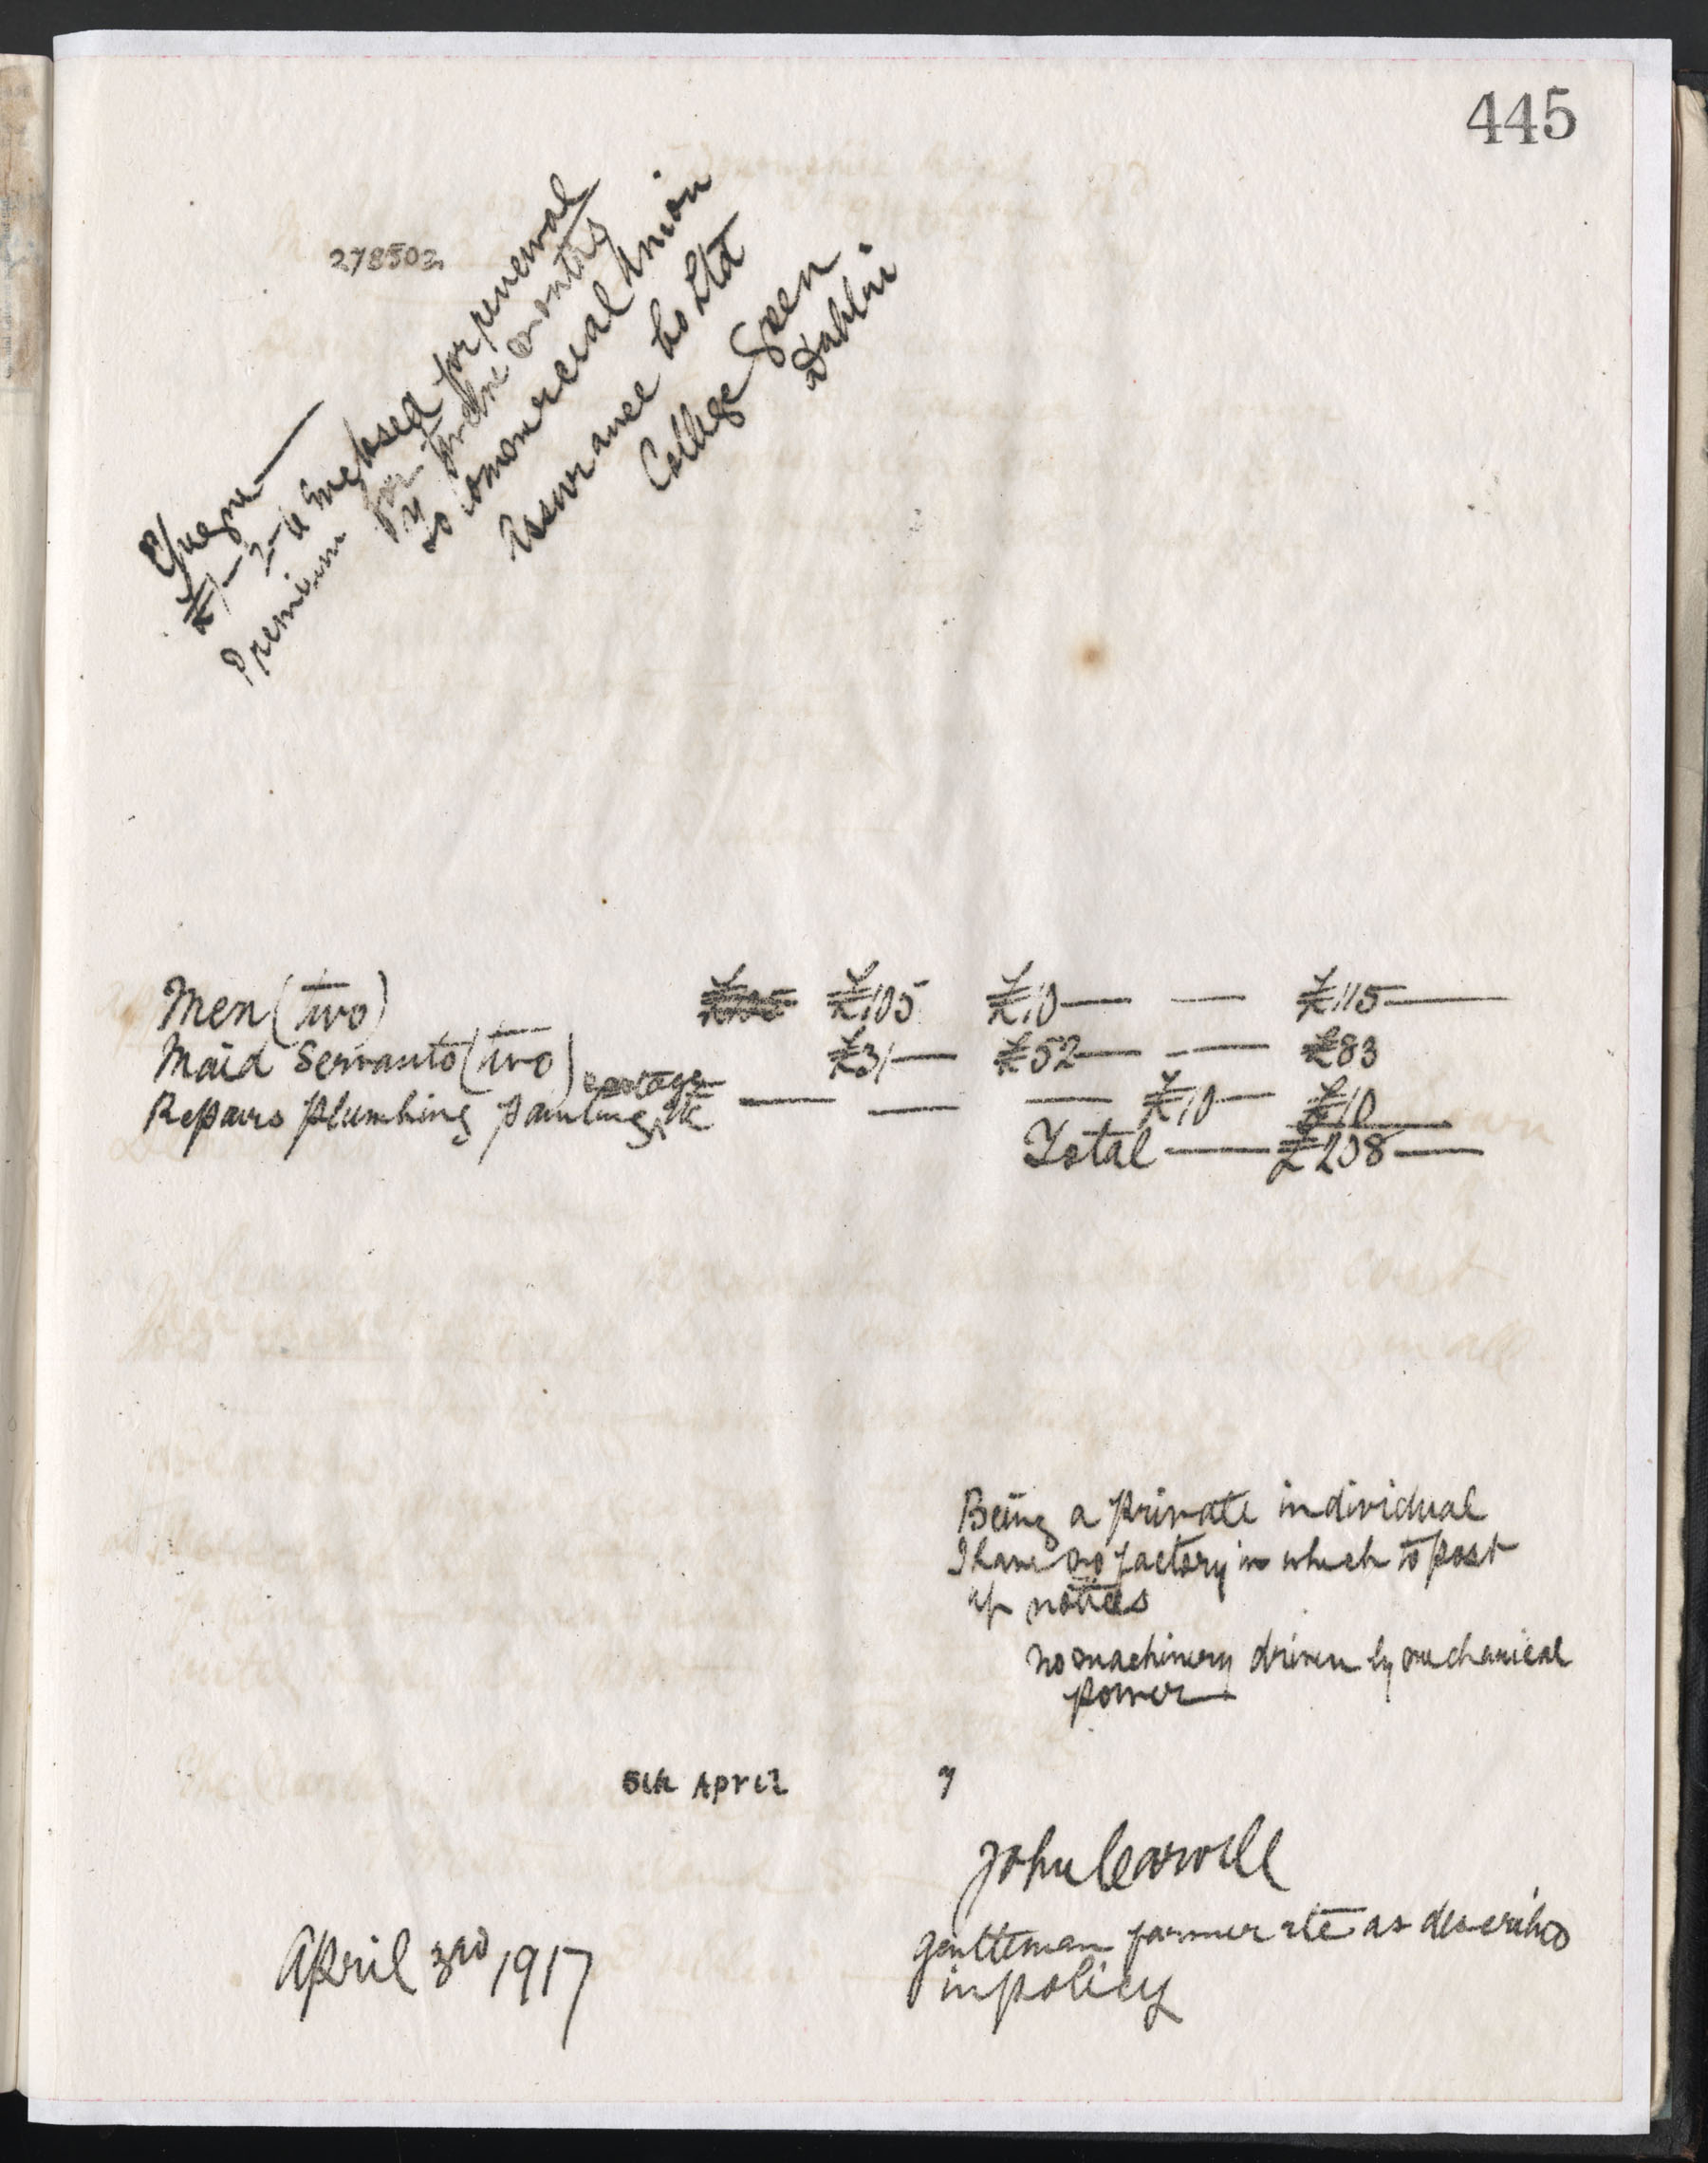 445
278502
Cheque
£1-2-6 inclosed for renewal
Premium for twelve months
to Commercial Union
Assurance Co Ltd
College Green
Dublin
Men (two) £105 £10 — — £115 —
Maid Servants (two) £31 — £52 — — £83
cartage
Repairs plumbing painting etc — — — £10 — £10
Total — £208 —
Being a private individual
I have no factory in which to post
up notices
no machinery driven by mechanical
power
5th April 7
John
April 3rd 1917
gentleman farmer etc as described
in policy